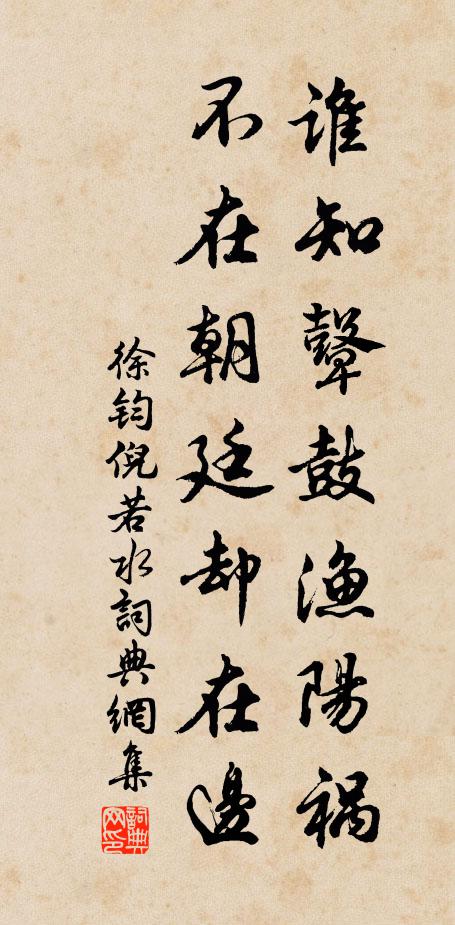 誰知鼙鼓漁陽禍
不在朝廷却在邊
徐鈞倪若水詞典網集
詞典
网印